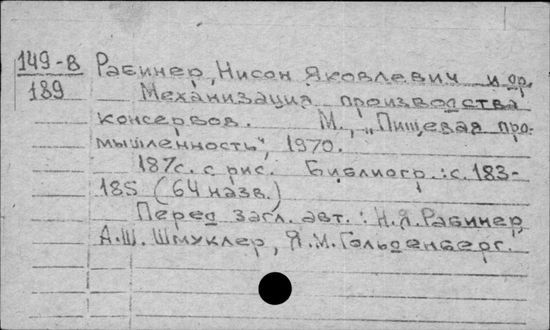 149-8 Рабинер, Нисон Яковлевич и др.
189 Механизация производства
консервов. М., „Пищевая про-
мышленность", 1970.
187с. с рис. Библиогр.: с. 183-
185 (64 назв.)
Перед загл. авт.: Н.Я. Рабинер,
А.Ш. Шмуклер, Я.М. Гольденберг.